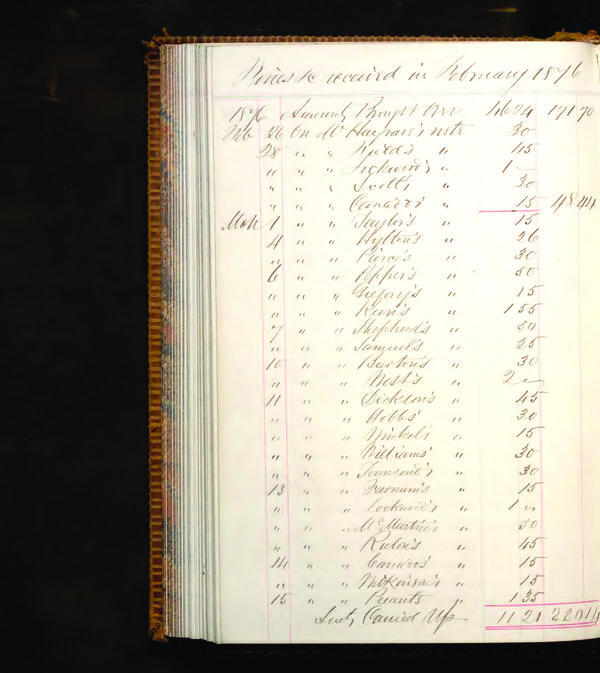 Fines &c received in February 1876
1876 Amount Brought Over 46 24 171 70
Feb 26 On Mr Hargrave's note 30
28 " " Field's " 45
" " " Lockwood's " 1 "
" " " Scott's " 30
" " " Canados' " 15 48 44
Mch 1 " " Taylor's " 15
4 " " Hylton's " 26
" " " Pierce's " 30
6 " " Pepper's " 50
" " " Gregory's " 15
" " " Keen's " 1 55
7 " " Shepherd's " 50
" " " Samuel's " 25
10 " " Burton's " 30
" " " West's " 2 "
11 " " Dickson's " 45
" " " Hobbs' " 30
" " " Nickel's " 15
" " " Williams' " 30
" " " Townsend's " 30
13 " " Farnum's " 15
" " " Lockwood's " 1 "
" " " " 50
" " " " 45
14 " " Canados' " 15
" " " Wilkinson's " 15
15 " " " 1 35
Amt Carried Up 11 21 220 14